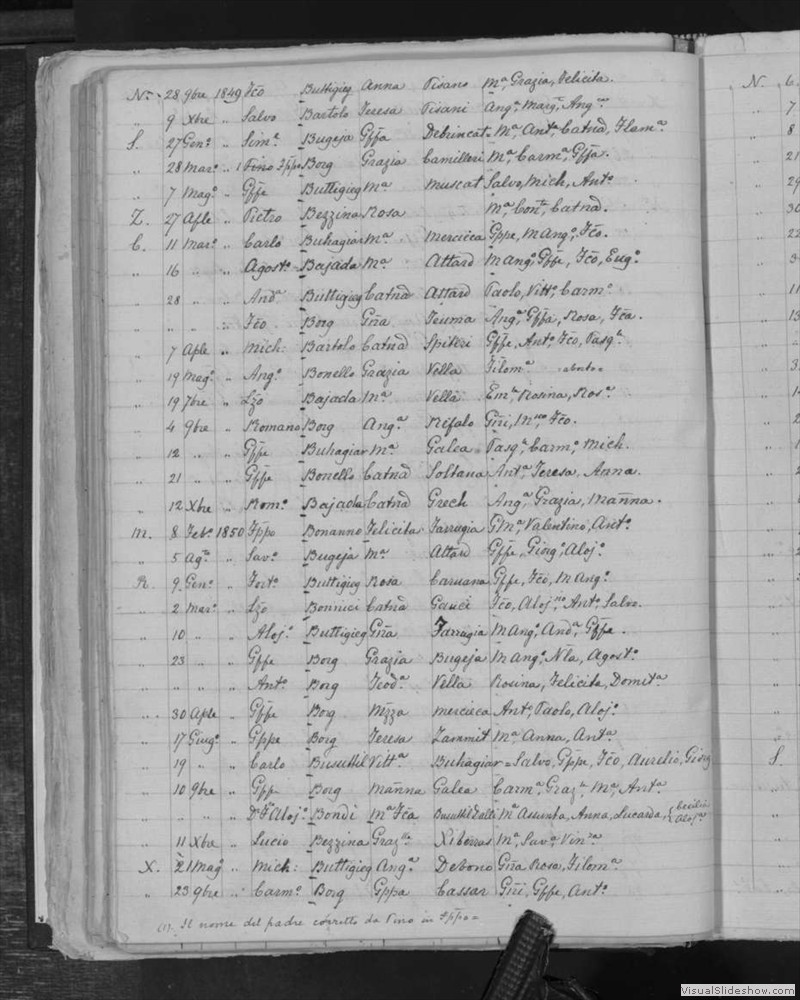 N. 28 9bre 1849 Fco Buttigieg Anna Pisano Mª Grazia, Felicita.
" 9 Xbre " Salvo Bartolo Teresa Pisani Angª Margª Angª
S. 27 Genº " Simº Bugeja Gffa Debrincat Mª Antª Catnã, Filomª
" 28 Marº " 1 Pino Fppo Borg Grazia Camilleri Mª Carmª Gffa.
" 7 Magº " Gffe Buttigieg Mª Muscat Salvo, Mich, Antº
Z. 27 Aple " Pietro Bezzina Rosa Mª Contª Catnã.
C. 11 Marº " Carlo Buhagiar Mª Mercieca Gppe, M Angº, Fco.
" 16 " " Agostº Bajada Mª Attard M Angº, Gffe, Fco, Eugº
" 28 " " Andª Buttigieg Catnã Attard Paolo, Vittº, Carmº
" " " " Fco Borg Gña Teuma Angª Gffa, Rosa, Fca.
" 7 Aple " Mich: Bartolo Catnã Spiteri Gffe, Antº, Fco, Pasqª
" 19 Magº " Angº Bonello Grazia Vella Filomª
" 19 7bre " Lzo Bajada Mª Vella Emª Rosina, Rosª
" 4 9bre " Romano Borg Angª Refalo Gñi, Fco.
" 12 " " Gffe Buhagiar Mª Galea Pasqª Carmº, Mich.
" 21 " " Gffe Bonello Catnã Soltana Antª Teresa, Anna.
" 12 Xbre " Romº Bajada Catnã Grech Angª Grazia, Mañna.
M. 8 Febº 1850 Fppo Bonanno Felicita Farrugia Glmº Valentino, Antº
" 5 Agº " Savº Bugeja Mª Attard Gffe, Giorgº, Alojº
R. 9 Genº " Fortº Buttigieg Rosa Caruana Gffe, Fco, M Angº
" 2 Marº " Lzo Bonnici Catnã Gauci Fco, Alojº, Antº, Salvo.
" 10 " " Alojº Buttigieg Gña Farrugia M Angº, Andª, Gffe.
" 23 " " Gffe Borg Grazia Bugeja M Angº, Nla, Agostº
" " " " Antº Borg Teodª Vella Rosina, Felicita, Domitª
" 30 Aple " Gffe Borg Nzza Mercieca Antº, Paolo, Alojº
" 17 Giugº " Gppe Borg Teresa Zammit Mª Anna, Antª
" 19 " " Carlo Busuttil Vittª Buhagiar Salvo, Gppe, Fco, Aurelio, Giorg
" 10 9bre " Gffe Borg Mañna Galea Carmª Grazª Mª Antª
" " " Dr Alojº Bondi Mª Fca Mª Assunta, Anna, Lucarda, Cecilia Alojª
" 11 Xbre " Lucio Bezzina Grazª Xiberras Mª Savª Vinª
X. 21 Magº " Mich: Buttigieg Angª Debono Gña, Rosa, Filomª
" 23 9bre " Carmº Borg Gppa Cassar Gñi, Gffe, Antº
(1). Il nome del padre corretto da Pino in Fppo =
VisualSlideshow.com